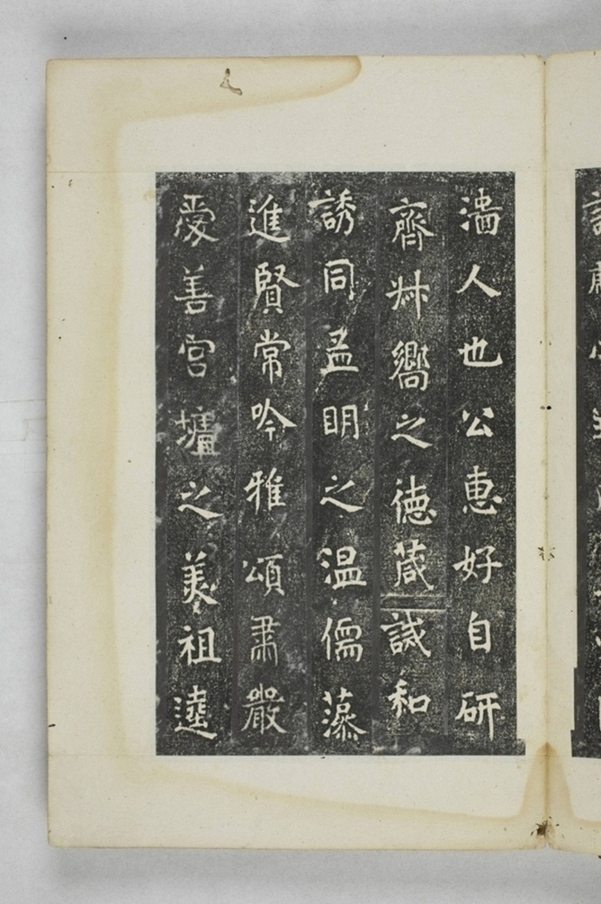 濇人也公惠好自研
齊州嚮之德蒇誠和
誘同孟明之温儒藻
進賢常吟雅頌肅嚴
愛善宫墟之美祖達